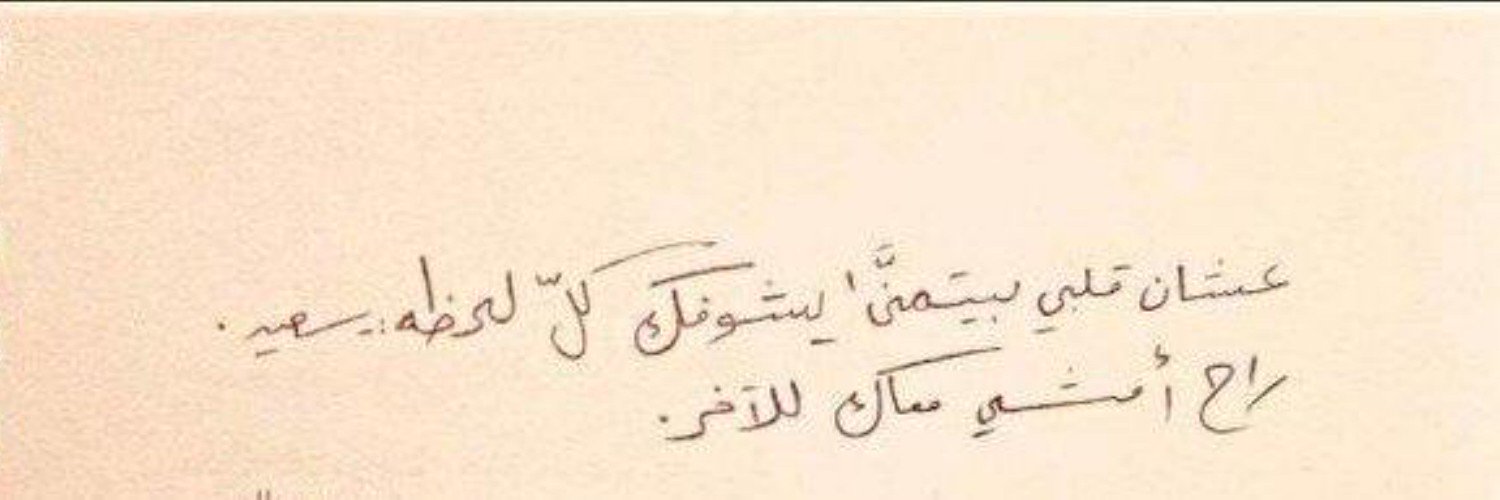 عشان قلبي بيتمنَّا يشوفك كلّ لحظه .. سعيد .
راح أمشي معاك للآخر .